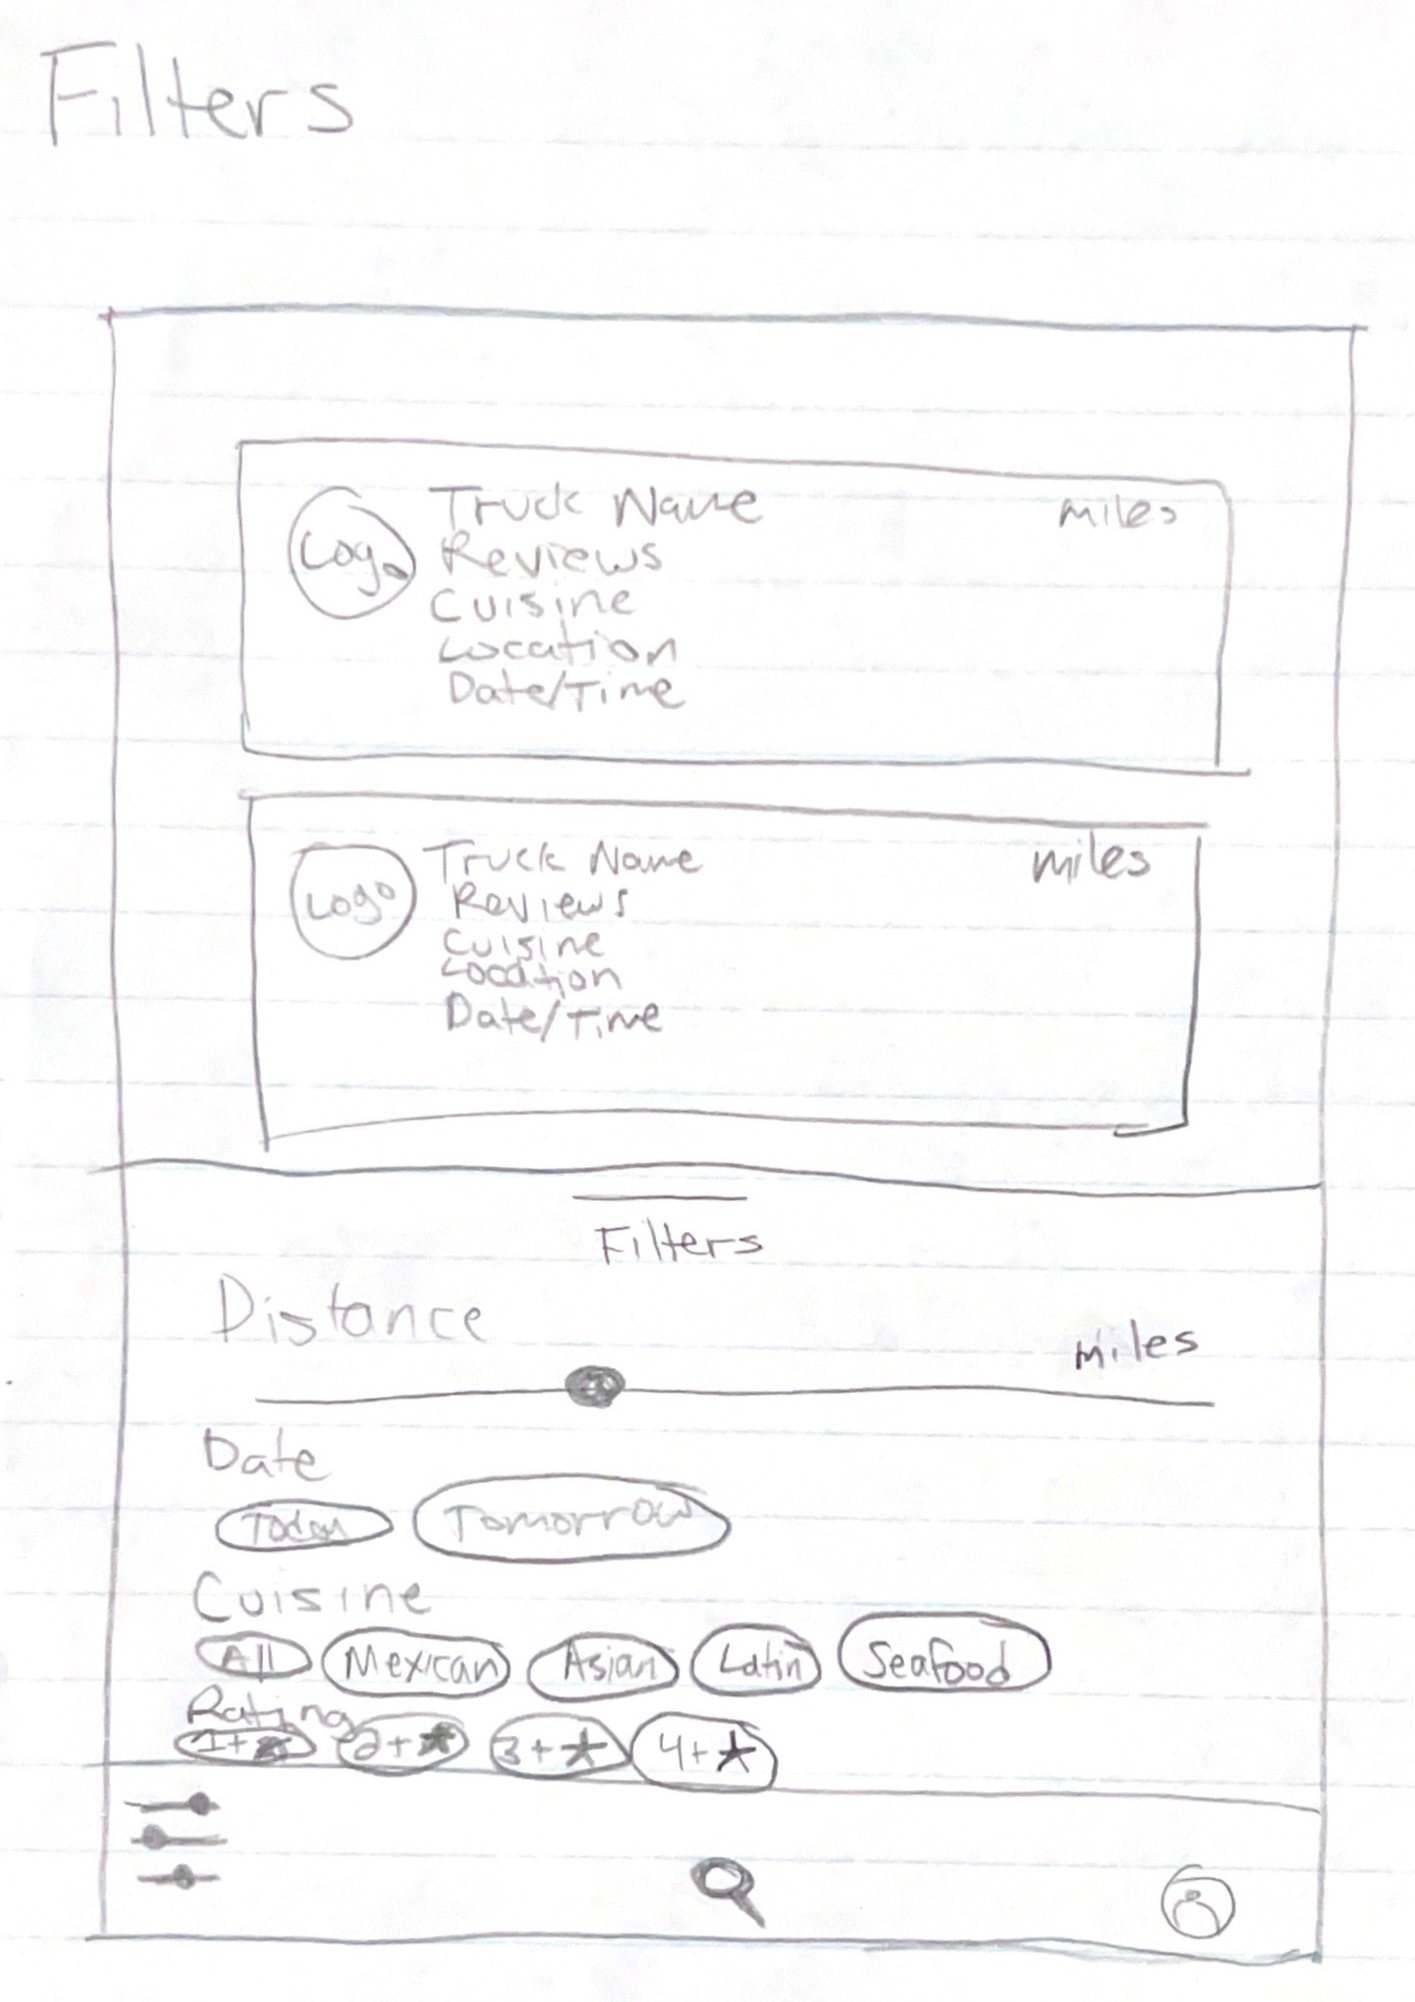 Filters
Logo Truck Name miles
Reviews
Cuisine
Location
Date/Time
Logo Truck Name miles
Reviews
Cuisine
Location
Date/Time
Filters
Distance
miles
Date
Today Tomorrow
Cuisine
All Mexican Asian Latin Seafood
Rating
1+★ 2+★ 3+★ 4+★